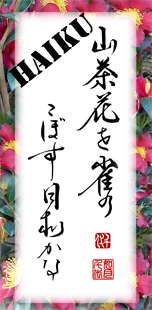 HAIKU
山茶花を雀の
こぼす日和かな